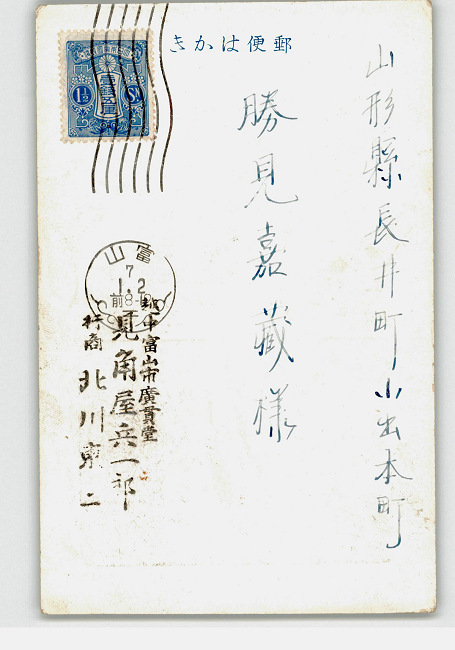 郵便はかき
山形縣長井町小出本町
勝見嘉藏様
壹錢五厘
1½ Sn
富山
7
1.2
前8-
越中富山市廣貫堂
見角屋兵一郎
行商 北川東二